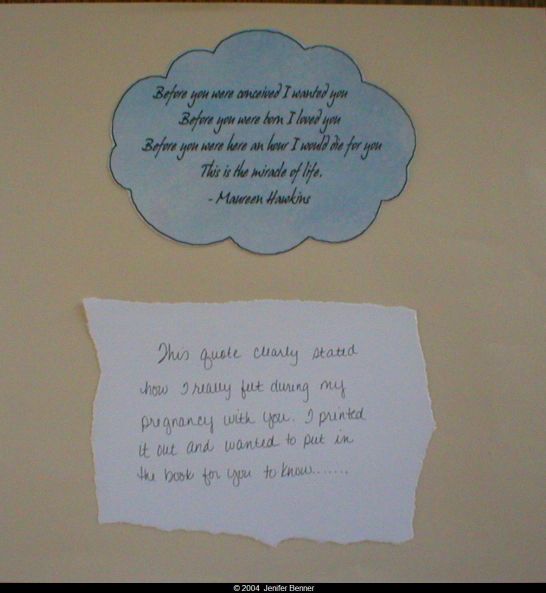 Before you were conceived I wanted you
Before you were born I loved you
Before you were here an hour I would die for you
This is the miracle of life.
- Maureen Hawkins
This quote clearly stated
how I really felt during my
pregnancy with you. I printed
it out and wanted to put in
the book for you to know.......
© 2004 Jenifer Benner